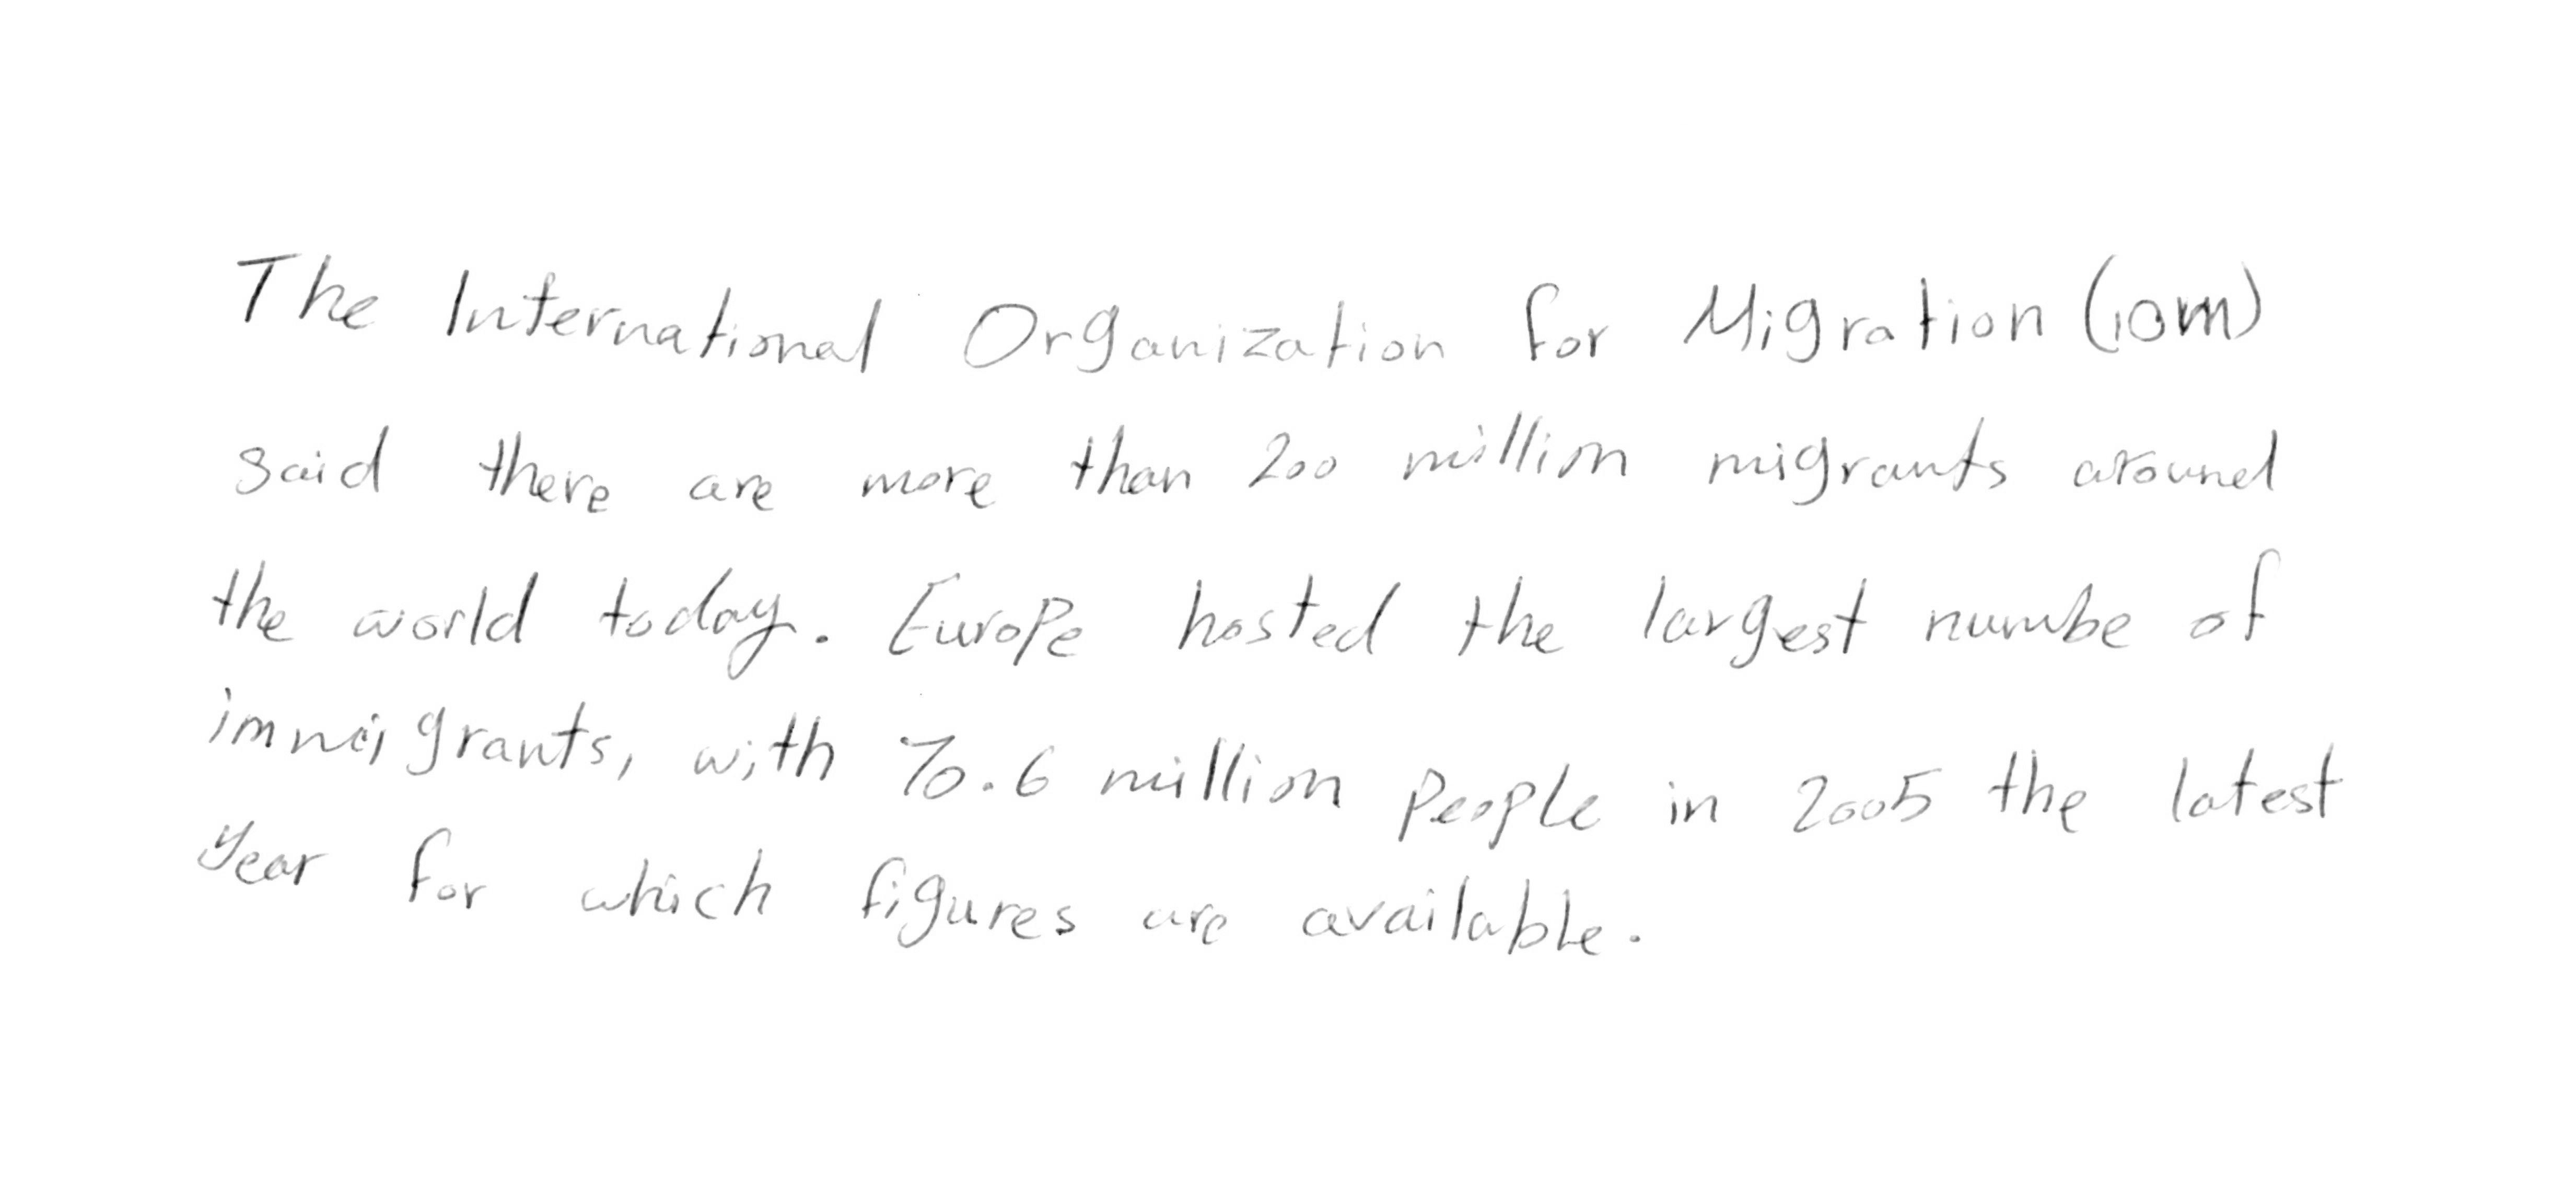 The International Organization for Migration (IOM)
said there are more than 200 million migrants around
the world today. Europe hosted the largest numbe of
immigrants, with 70.6 million people in 2005 the latest
year for which figures are available.